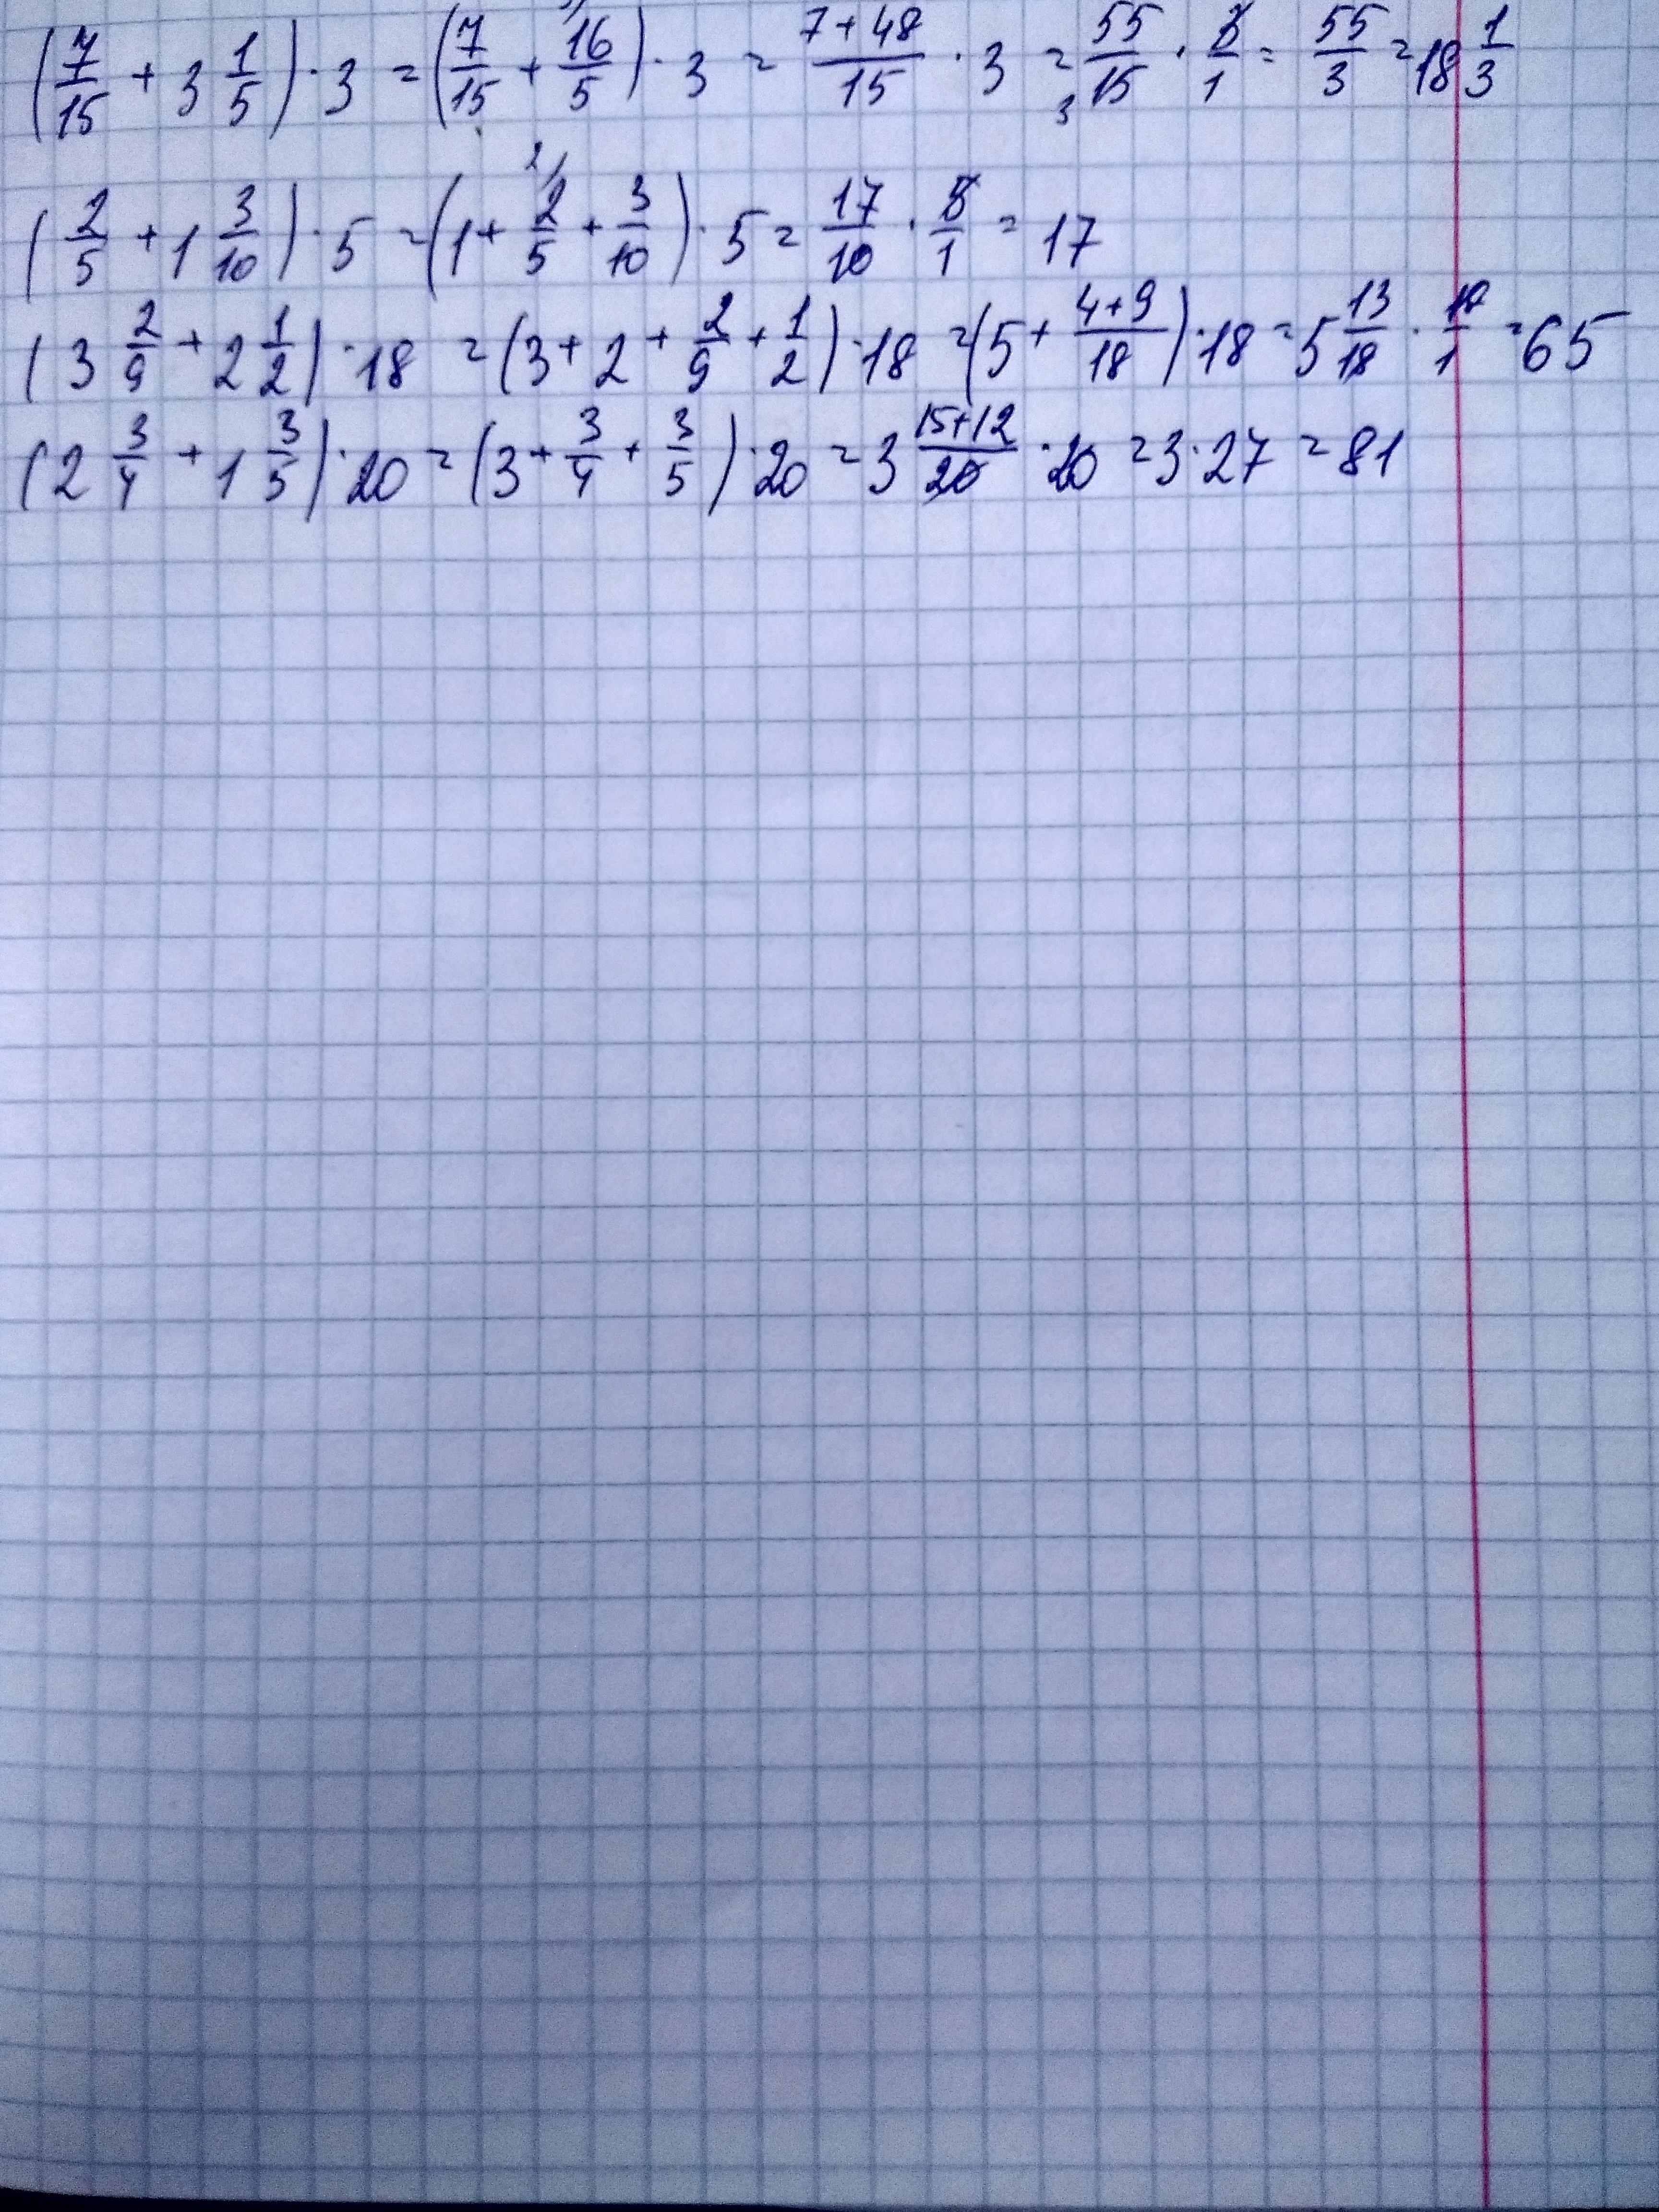 (7/15 + 3 1/5) · 3 = (7/15 + 16/5) · 3 = (7+48)/15 · 3 = 55/15 · 3/1 = 55/3 = 18 1/3
(2/5 + 1 3/10) · 5 = (1 + 2/5 + 3/10) · 5 = 17/10 · 5/1 = 17
(3 2/9 + 2 1/2) · 18 = (3 + 2 + 2/9 + 1/2) · 18 = (5 + (4+9)/18) · 18 = 5 13/18 · 18/1 = 65
(2 3/4 + 1 3/5) · 20 = (3 + 3/4 + 3/5) · 20 = 3 (15+12)/20 · 20 = 3 · 27 = 81